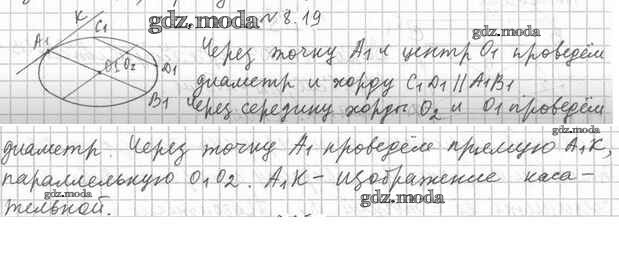 gdz.moda №8.19
K
C1
A1
gdz.moda
O1 O2
D1
B1
Через точку A1 и центр O1 проведём
диаметр и хорду C1D1 || A1B1
Через середину хорды O2 и O1 проведём
gdz.moda
диаметр. Через точку A1 проведём прямую A1K,
параллельную O1O2. A1K - изображение каса-
gdz.moda
gdz.moda
тельной.